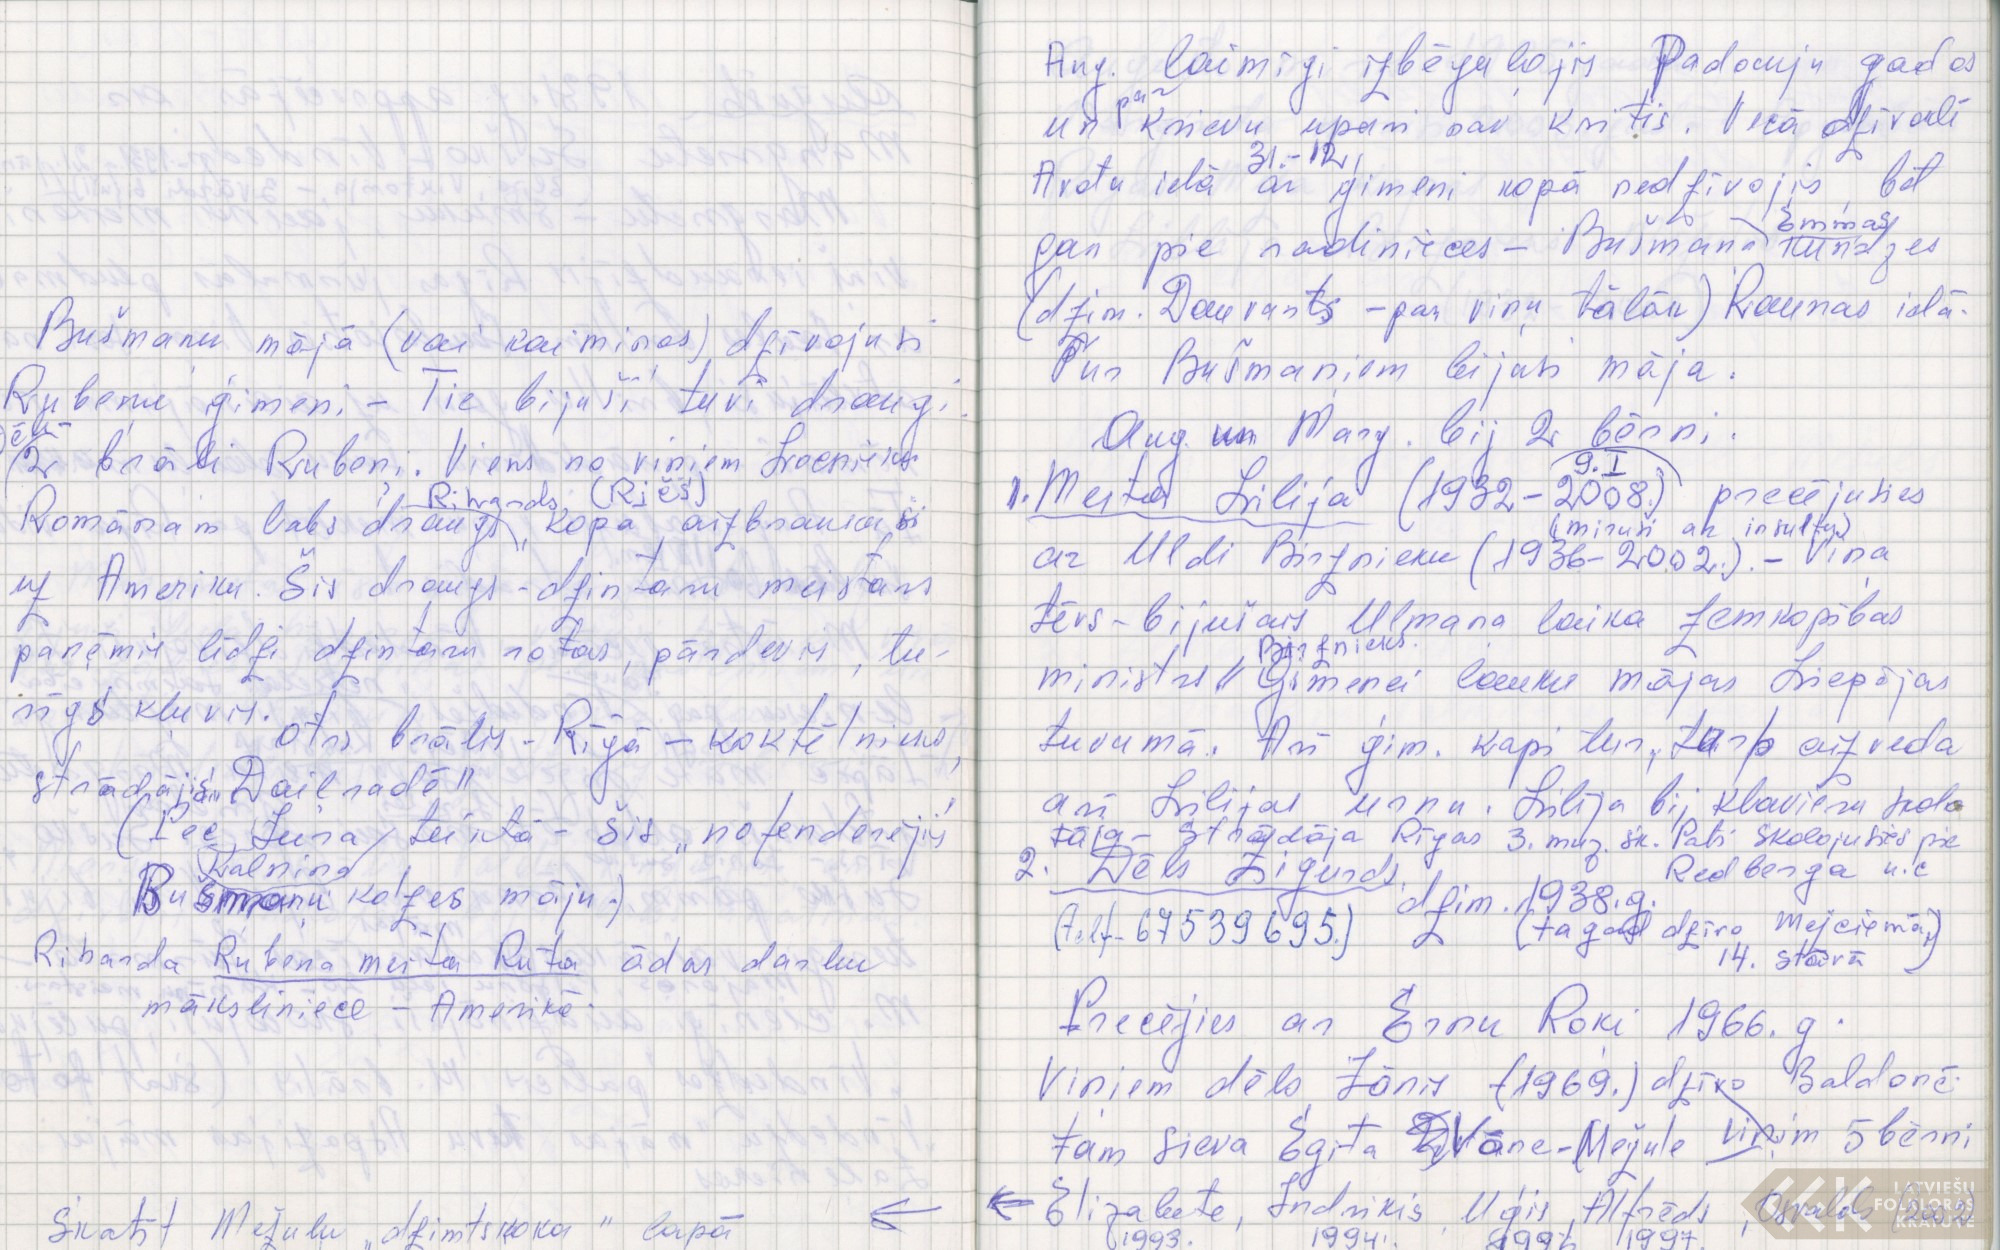 Bušmaņu mājā (vai kaimiņos) dzīvojusi
Rubeņu ģimeni - Tie bijuši tuvi draugi.
(2 brāļi Rubeņi. Viens no viņiem
Romānam labs draugs, Rihards (Ričs) kopā aizbraukuši
uz Ameriku. Šis draugs - dzintaru meistars
paņēmis līdzi dzintaru rotas, pārdevis, tu-
rīgs kļuvis. Otrs brālis - Rīgā - koktēlnieks,
strādājis "Daiļradē"
(Pēc Jura Kalniņa teiktā - šis "nofenderējis
Bušmaņu Kolzes māju.)
Riharda Rubeņa meita Rūta ādas darbu
māksliniece - Amerikā.
Skatīt Mežuļu "dzimtskoka" lapā
Aug. laimīgi izbēguļojis Padomju gados
un par krievu upuri nav kritis. Vecā dzīvoklī
Avotu ielā 31.-12, ar ģimeni kopā nedzīvojis, bet
gan pie radinieces - Bušmaņa Emmas kundzes
(dzim. Daurants - par viņu tālāk) Raunas ielā.
Tur Bušmaņiem bijusi māja.
Aug. un Marg. bij 2 bērni.
1. Meita Lilija (1932 - 9.I 2008.) precējusies
(mirusi ar insultu)
ar Uldi Birznieku (1936-2002.). - Viņa
tēvs - bijušais Ulmaņa laika zemkopības
ministrs Birznieks. Ģimenei lauku mājas Liepājas
tuvumā. Arī ģim. kapi tur, turp aizveda
arī Lilijas urnu. Lilija bij klavieru skolo
tāja - strādāja Rīgas 3. muz. šk. Pati skolojusies pie
Redberga u.c
2. Dēls Zigurds dzim. 1938.g.
(telf- 67539695.) (tagad dzīvo Mežciemā,
14. stāvā)
Precējies ar Ernu Roķi 1966. g.
Viņiem dēls Jānis (1969.) dzīvo Baldonē.
tam sieva Egita Zvāne-Mežule viņiem 5 bērni
Elizabete, Indriķis, Uģis, Alfrēds, Osvalds
(1993. 1994. 1996. 1997.
LATVIEŠU
FOLKLORAS
KRĀTUVE